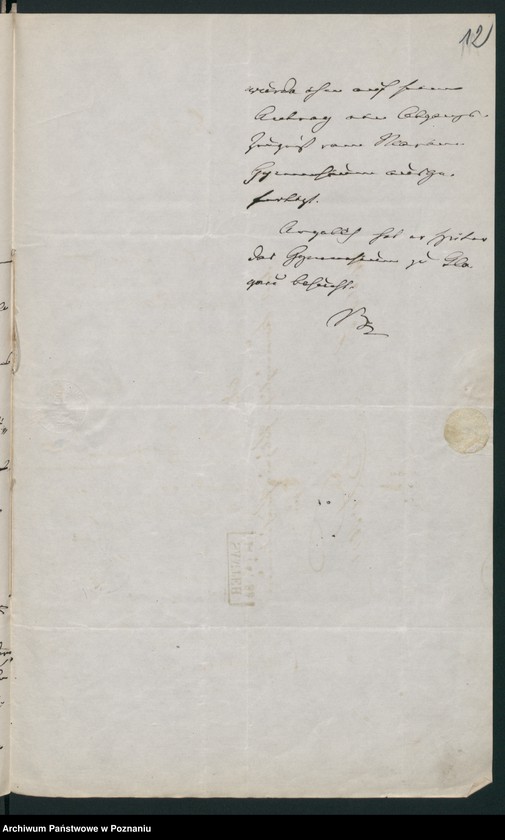 12
wurde ihm auf seinen
Antrag ein Abgangs-
zeugniß vom Marien
Gymnasium ausge-
fertigt.
Angeblich hat er später
das Gymnasium zu Glo
gau besucht.
Archiwum Państwowe w Poznaniu